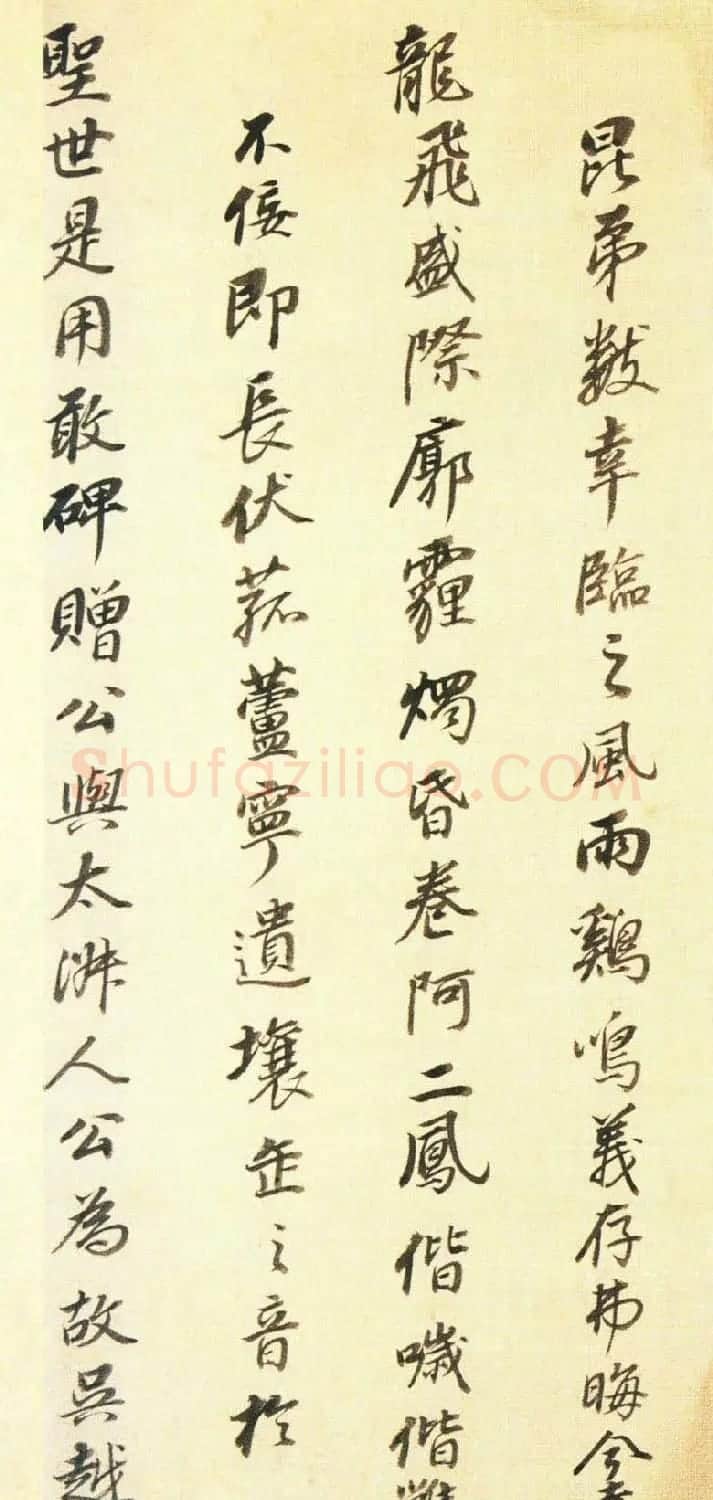 昆弟數幸臨之風雨鷄鳴義存弗晦今
龍飛盛際廓霾燭昏卷阿二鳳偕噦偕
不佞即長伏菰蘆寧遺壤缶之音於
聖世是用敢碑贈公與太淑人公為故吳越
Shufaziliao.COM